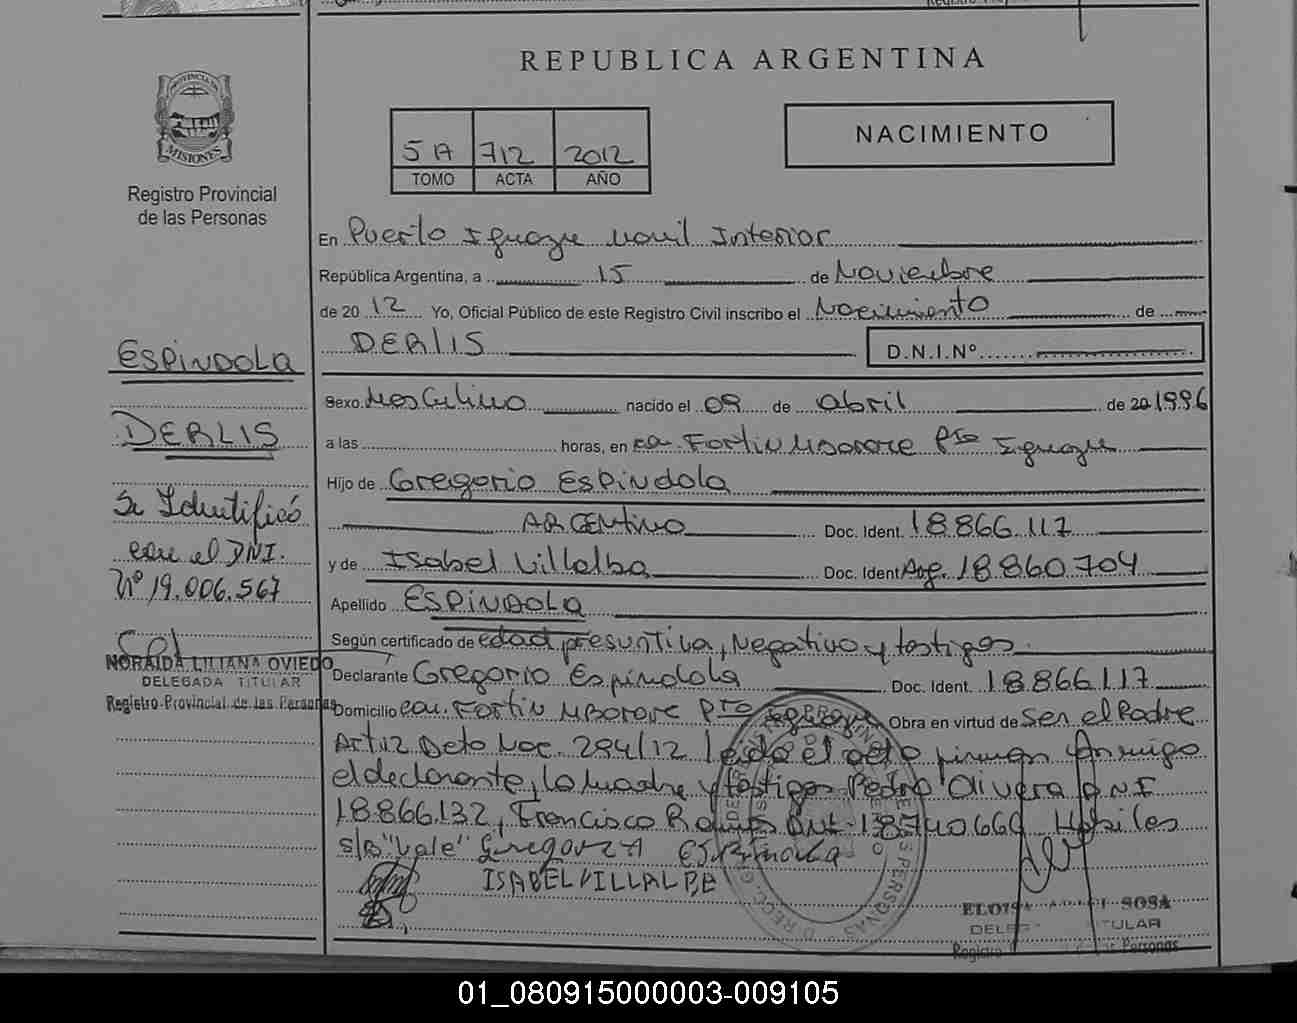 REPUBLICA ARGENTINA
PROVINCIA DE
MISIONES
Registro Provincial
de las Personas
5 A 712 2012
TOMO ACTA AÑO
NACIMIENTO
En Puerto Iguazu Movil Interior
República Argentina, a 15 de Noviembre
de 20 12 Yo, Oficial Público de este Registro Civil inscribo el Nacimiento de
DERLIS
D.N.I.Nº
Sexo Masculino nacido el 09 de abril de 20 1996
a las horas, en ca. Fortin Mborore Pto Iguazu
Hijo de Gregorio Espindola
ARGENTINO Doc. Ident. 18.866.117
y de Isabel Villalba Doc. Ident Arg. 18.860.704
Apellido ESPINDOLA
Según certificado de edad presuntiva, Negativo y testigos
Declarante Gregorio Espindola Doc. Ident. 18866117
Domicilio ca. Fortin Mborore Pto Iguazu Obra en virtud de Ser el Padre
Art 12 Dcto Nac. 294/12 leido el acta firman conmigo
el declarante, la madre y testigos Pedro Olivera D.N.I
18.866.132, Francisco Ramos DNI 18740660 Habiles
s/B "Vale" GREGORIA ESPINDOLA
ISABEL VILLALBA
ELOISA SOSA
TITULAR
Registro de las Personas
ESPINDOLA
DERLIS
Se Identificó
con el DNI.
Nº 19.006.567
NORAIDA LILIANA OVIEDO
DELEGADA TITULAR
Registro Provincial de las Personas
01_080915000003-009105